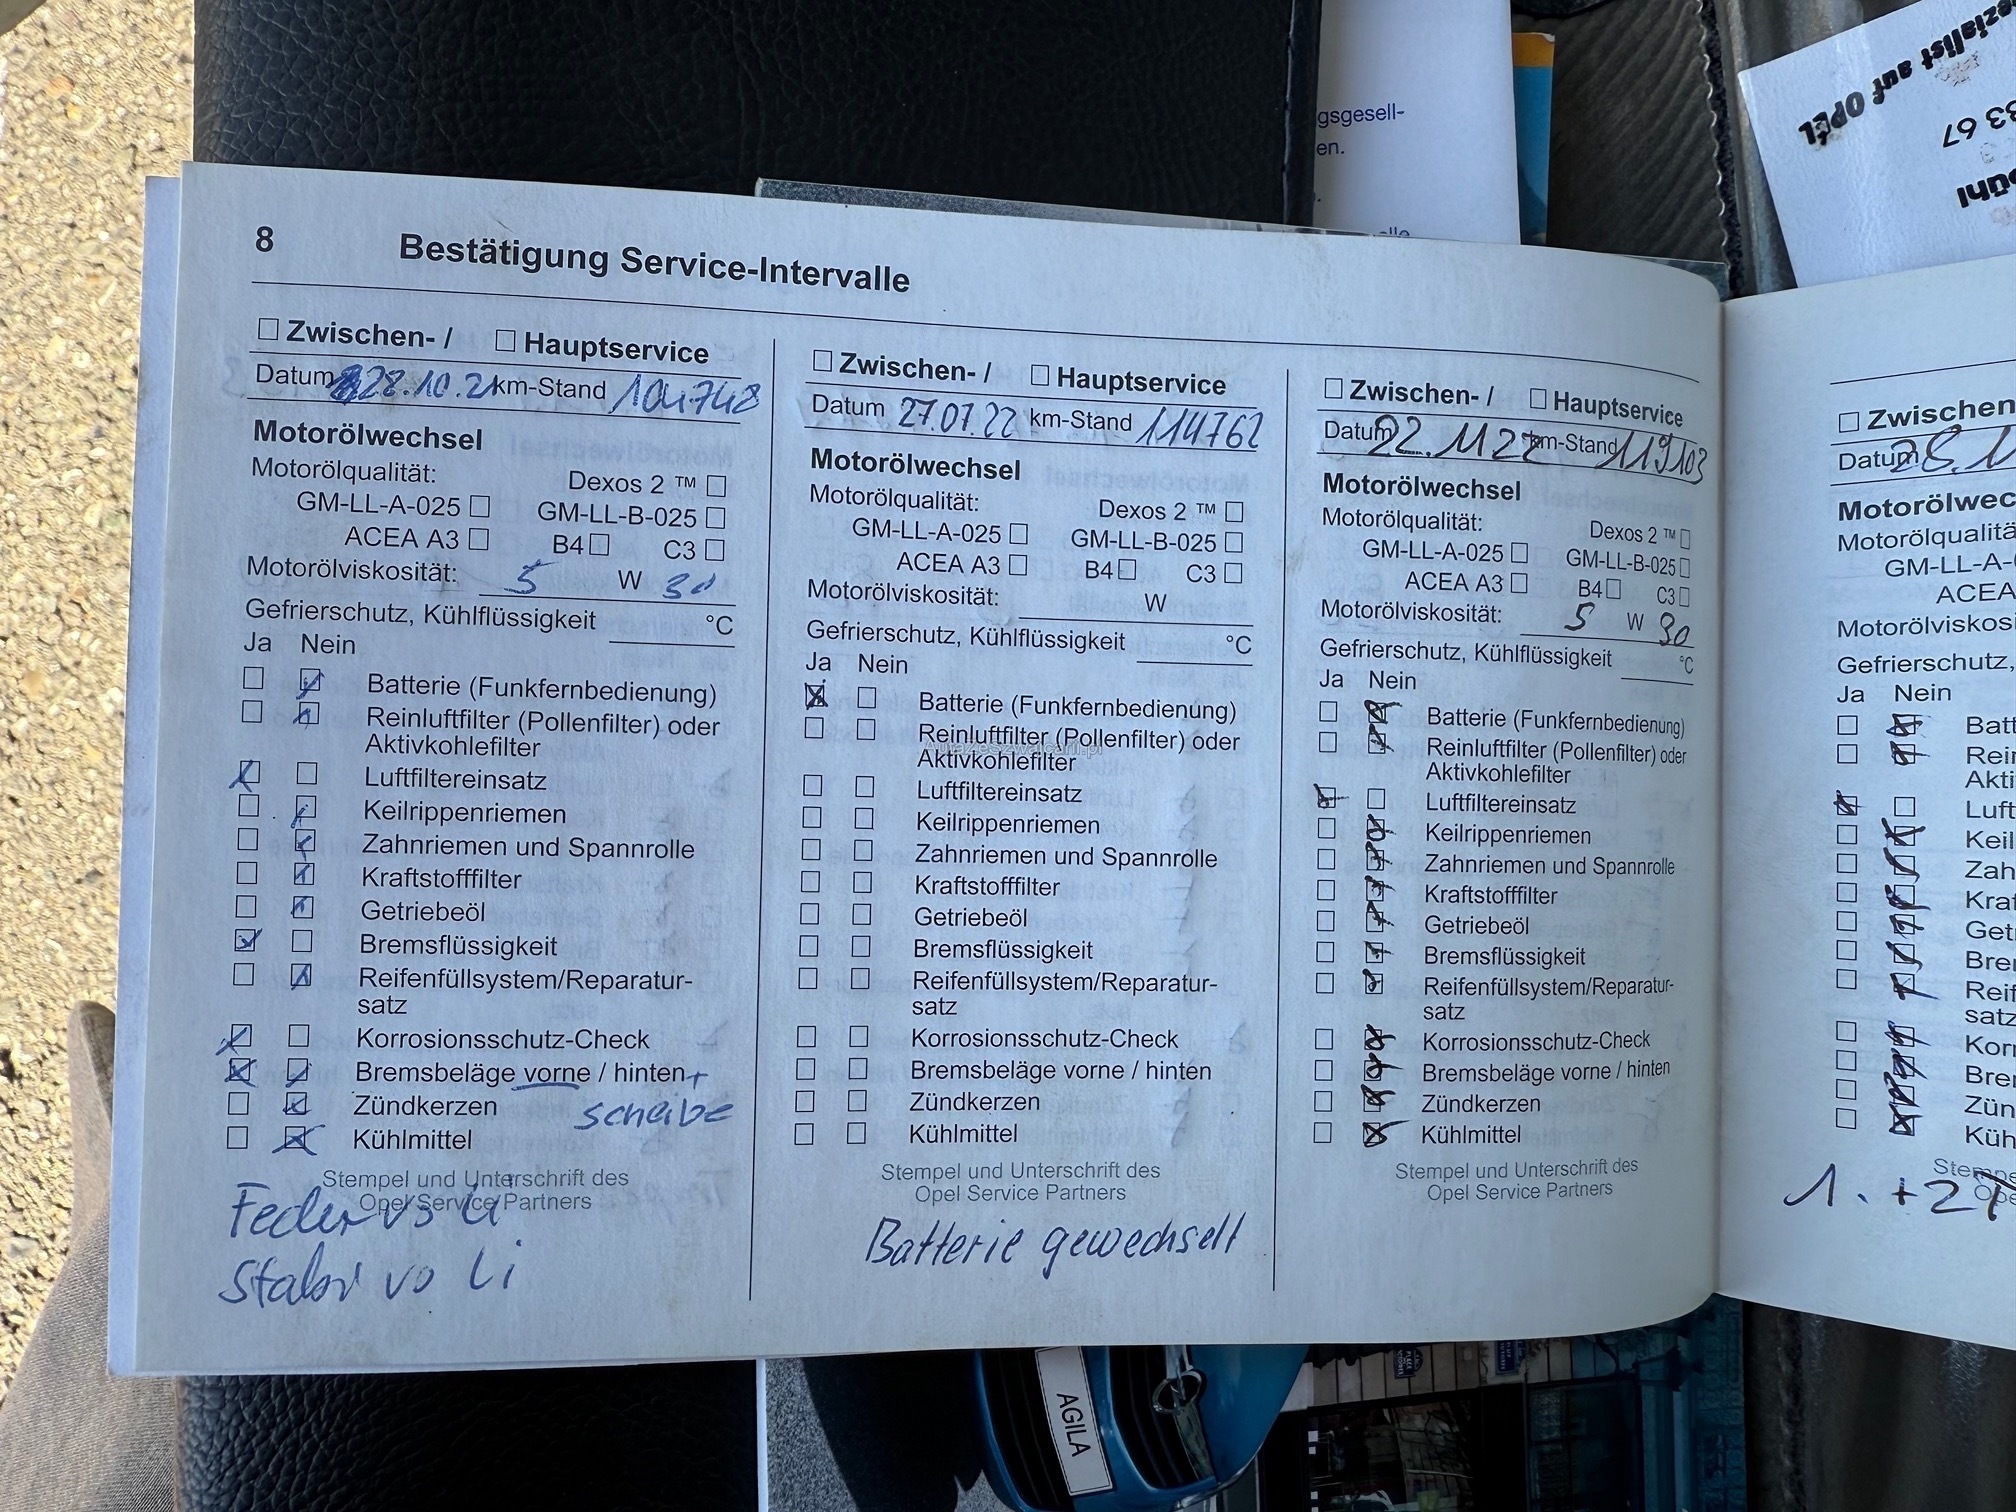 gsgesell-
en.
ezialist auf OPEL
33 67
bühl
8 Bestätigung Service-Intervalle
☐ Zwischen- / ☐ Hauptservice
Datum 28.10.21 km-Stand 104748
Motorölwechsel
Motorölqualität: Dexos 2 ™ ☐
GM-LL-A-025 ☐ GM-LL-B-025 ☐
ACEA A3 ☐ B4 ☐ C3 ☐
Motorölviskosität: 5 W 30
Gefrierschutz, Kühlflüssigkeit °C
Ja Nein
☐ ☒ Batterie (Funkfernbedienung)
☐ ☒ Reinluftfilter (Pollenfilter) oder
Aktivkohlefilter
☒ ☐ Luftfiltereinsatz
☐ ☒ Keilrippenriemen
☐ ☒ Zahnriemen und Spannrolle
☐ ☒ Kraftstofffilter
☐ ☒ Getriebeöl
☒ ☐ Bremsflüssigkeit
☐ ☒ Reifenfüllsystem/Reparatur-
satz
☒ ☐ Korrosionsschutz-Check
☒ ☒ Bremsbeläge vorne / hinten +
☐ ☒ Zündkerzen scheibe
☐ ☒ Kühlmittel
Stempel und Unterschrift des
Opel Service Partners
Feder vo Li
Stabi vo Li
☐ Zwischen- / ☐ Hauptservice
Datum 27.07.22 km-Stand 114762
Motorölwechsel
Motorölqualität: Dexos 2 ™ ☐
GM-LL-A-025 ☐ GM-LL-B-025 ☐
ACEA A3 ☐ B4 ☐ C3 ☐
Motorölviskosität: W
Gefrierschutz, Kühlflüssigkeit °C
Ja Nein
☒ ☐ Batterie (Funkfernbedienung)
☐ ☐ Reinluftfilter (Pollenfilter) oder
Aktivkohlefilter
☐ ☐ Luftfiltereinsatz
☐ ☐ Keilrippenriemen
☐ ☐ Zahnriemen und Spannrolle
☐ ☐ Kraftstofffilter
☐ ☐ Getriebeöl
☐ ☐ Bremsflüssigkeit
☐ ☐ Reifenfüllsystem/Reparatur-
satz
☐ ☐ Korrosionsschutz-Check
☐ ☐ Bremsbeläge vorne / hinten
☐ ☐ Zündkerzen
☐ ☐ Kühlmittel
Stempel und Unterschrift des
Opel Service Partners
Batterie gewechselt
☐ Zwischen- / ☐ Hauptservice
Datum 22.11 22 km-Stand 119103
Motorölwechsel
Motorölqualität: Dexos 2 ™ ☐
GM-LL-A-025 ☐ GM-LL-B-025 ☐
ACEA A3 ☐ B4 ☐ C3 ☐
Motorölviskosität: 5 W 30
Gefrierschutz, Kühlflüssigkeit °C
Ja Nein
☐ ☒ Batterie (Funkfernbedienung)
☐ ☒ Reinluftfilter (Pollenfilter) oder
Aktivkohlefilter
☒ ☐ Luftfiltereinsatz
☐ ☒ Keilrippenriemen
☐ ☒ Zahnriemen und Spannrolle
☐ ☒ Kraftstofffilter
☐ ☒ Getriebeöl
☐ ☒ Bremsflüssigkeit
☐ ☒ Reifenfüllsystem/Reparatur-
satz
☐ ☒ Korrosionsschutz-Check
☐ ☒ Bremsbeläge vorne / hinten
☐ ☒ Zündkerzen
☐ ☒ Kühlmittel
Stempel und Unterschrift des
Opel Service Partners
☐ Zwischen
Datum 28.1
Motorölwec
Motorölqualitä
GM-LL-A-
ACEA
Motorölviskos
Gefrierschutz,
Ja Nein
☐ ☒ Batt
☐ ☒ Rein
Akti
☒ ☐ Luft
☐ ☒ Keil
☐ ☒ Zah
☐ ☒ Kraf
☐ ☒ Get
☐ ☒ Bre
☐ ☒ Reif
satz
☐ ☒ Korr
☐ ☒ Bre
☐ ☒ Zün
☐ ☒ Küh
Stempe
Ope
1. +2
AGILA